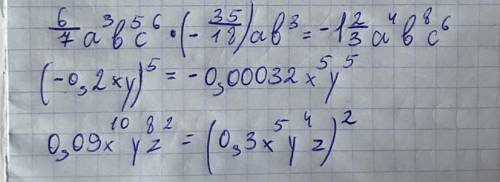 6/7 a³b⁵c⁶ · (-35/18)ab³ = -1 2/3 a⁴b⁸c⁶
(-0,2xy)⁵ = -0,00032x⁵y⁵
0,09x¹⁰y⁸z² = (0,3x⁵y⁴z)²